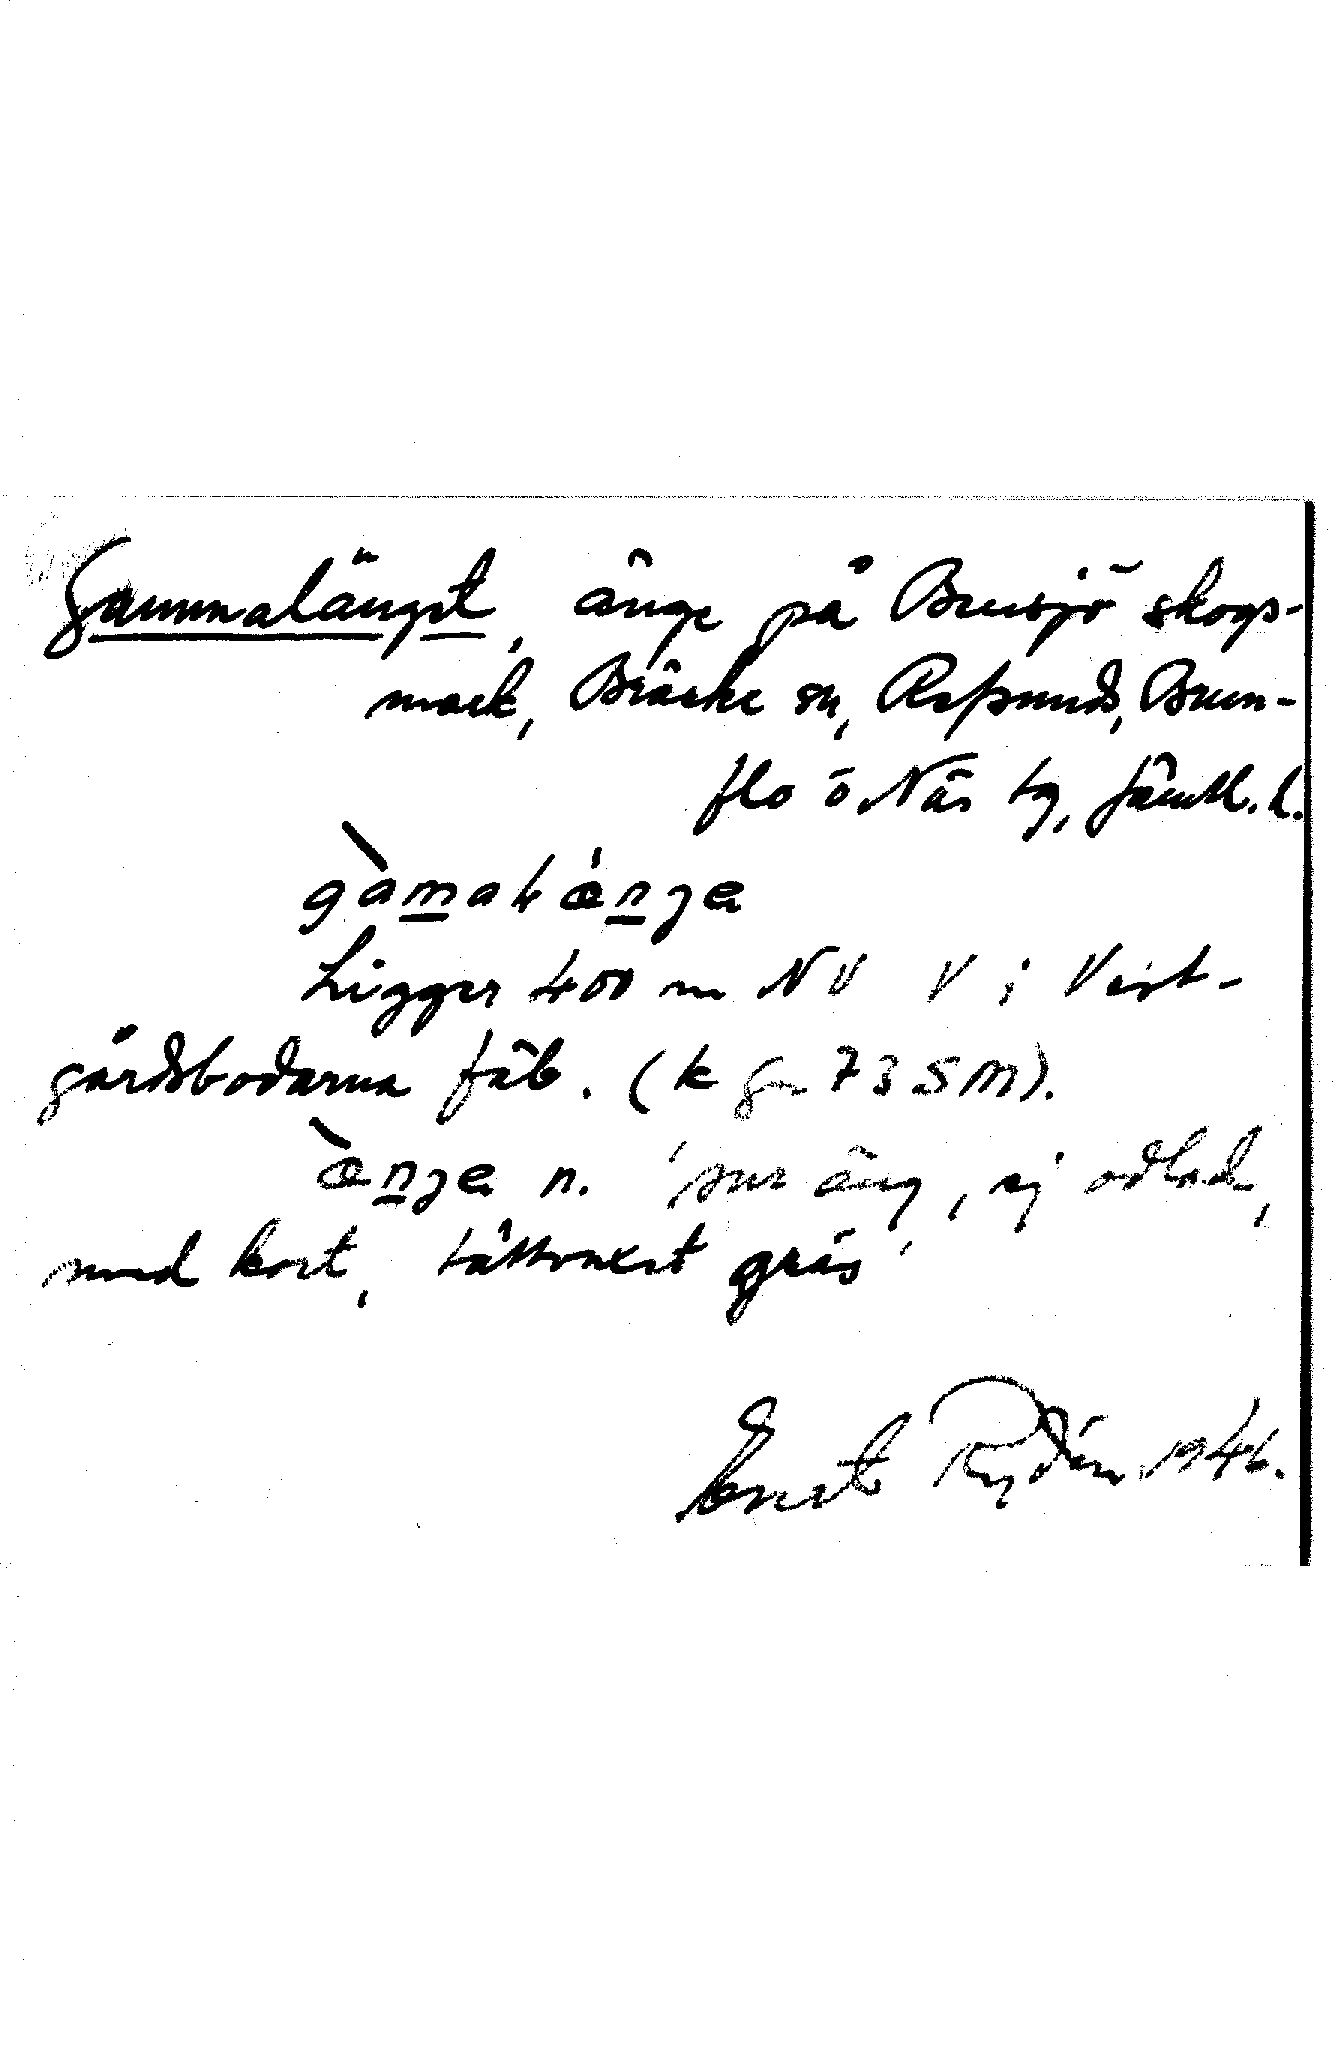 Gammalänget, änge på Bensjö skogs-
mark, Bräcke sn, Refsunds, Brun-
flo o Näs tg, Jämtl. l.
gàmaɫǽnje
Ligger 400 m NV V i Väst-
gårdsbodarna fäb. (k 73 SM).
æ̀nje n. 'sur äng, ej odlad,
med kort, tättvuxet gräs'
Ernst Rydén 1946.